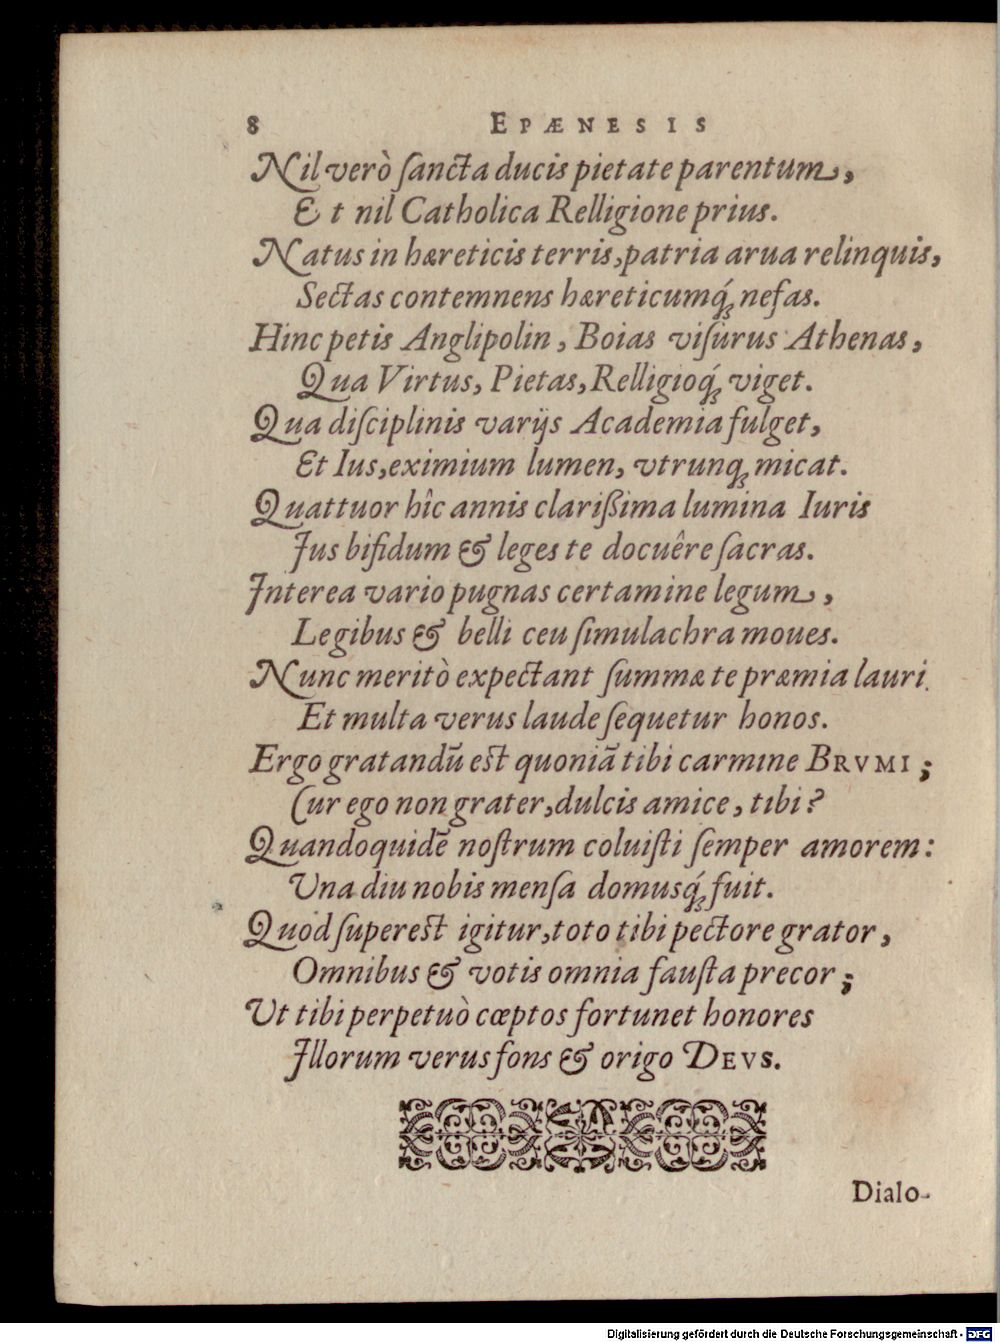 8 EPÆNESIS
Nil verò ſancta ducis pietate parentum,
Et nil Catholica Relligione prius.
Natus in hæreticis terris, patria arua relinquis,
Sectas contemnens hæreticumq́; nefas.
Hinc petis Anglipolin, Boias viſurus Athenas,
Qua Virtus, Pietas, Relligioq́; viget.
Qua diſciplinis varijs Academia fulget,
Et Ius, eximium lumen, vtrunq; micat.
Quattuor hîc annis clarißima lumina Iuris
Jus bifidum & leges te docuêre ſacras.
Interea vario pugnas certamine legum,
Legibus & belli ceu ſimulachra moues.
Nunc meritò expectant ſummæ te præmia lauri.
Et multa verus laude ſequetur honos.
Ergo gratandū est quoniā tibi carmine BRVMI;
Cur ego non grater, dulcis amice, tibi?
Quandoquidē noſtrum coluiſti ſemper amorem:
Una diu nobis menſa domusq́; fuit.
Quod ſuperest igitur, toto tibi pectore grator,
Omnibus & votis omnia fauſta precor;
Ut tibi perpetuò cœptos fortunet honores
Illorum verus fons & origo DEVS.
Dialo-
Digitalisierung gefördert durch die Deutsche Forschungsgemeinschaft - DFG